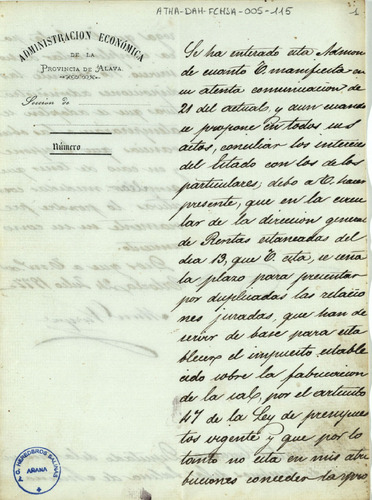 ATHA-DAH-FCHSA-005-115
1
ADMINISTRACION ECONÓMICA
DE LA
PROVINCIA DE ALAVA.
Seccion de
Número
Se ha enterado esta Admon
de cuanto V. manifiesta en
su atenta comunicacion de
21 del actual, y aun cuando
se propone en todos sus
actos, conciliar los intereses
del Estado con los de los
particulares, debo a V. hacer
presente, que en la circu
lar de la direccion general
de Rentas estancadas del
dia 13, que V. cita, se seña
la plazo para presentar
por duplicadas las relacio
nes juradas, que han de
servir de base para esta
blecer el impuesto estable
cido sobre la fabricacion
de la sal, por el articulo
47 de la Ley de presupues
tos vigente y que por lo
tanto no esta en mis atri
buciones conceder la pro
C. G. HEREDEROS SALINAS
AÑANA